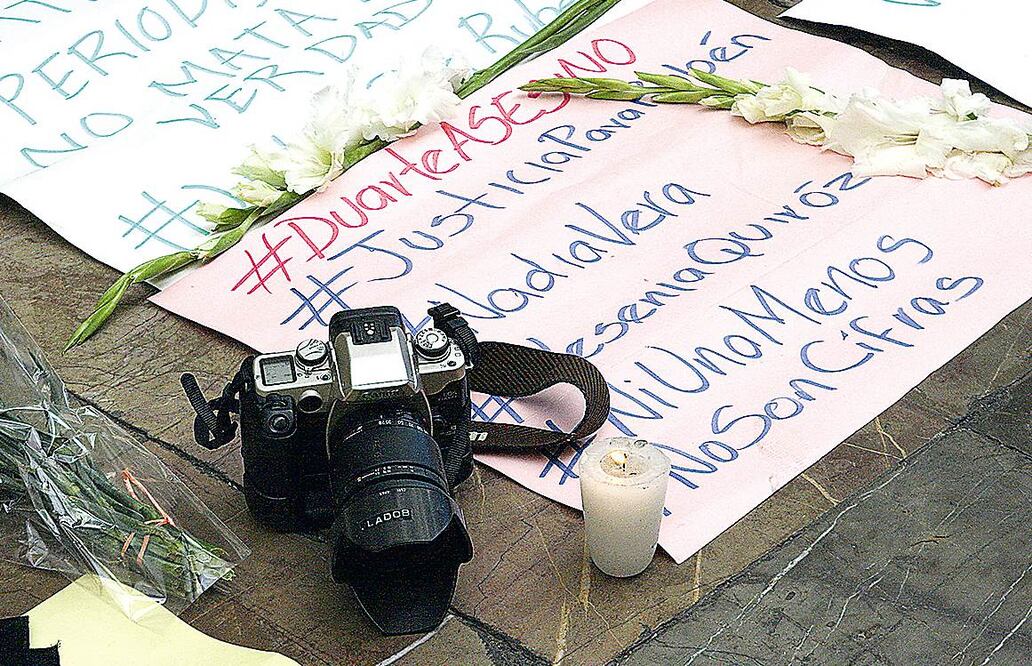 PERIODI
NO MATA
VERDAD
Rub
#
#DuarteASESINO
#JusticiaPara
#NadiaVera
eseniaQuiróz
#NiUnaMenos
NoSonCifras
LADOB